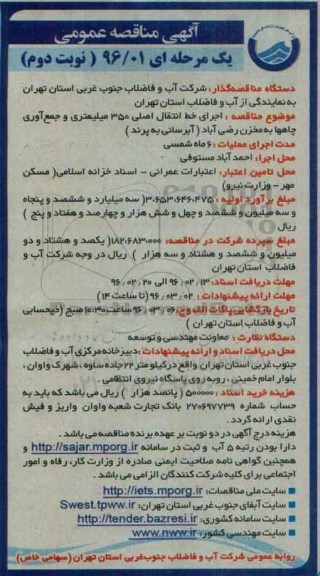 آگهی مناقصه عمومی
یک مرحله ای ۹۶/۰۱ ( نوبت دوم)
دستگاه مناقصه‌گذار : شرکت آب و فاضلاب جنوب غربی استان تهران
به نمایندگی از آب و فاضلاب استان تهران
موضوع مناقصه : اجرای خط انتقال اصلی ۳۵۰ میلیمتری و جمع‌آوری
چاهها به مخزن رضی آباد ( آبرسانی به پرند )
مدت اجرای عملیات : ۶ ماه شمسی
محل اجرا: احمد آباد مستوفی
محل تامین اعتبار: اعتبارات عمرانی - اسناد خزانه اسلامی( مسکن
مهر - وزارت نیرو)
مبلغ برآورد اولیه : ۳،۶۵۳،۶۴۶،۴۷۵( سه میلیارد و ششصد و پنجاه
و سه میلیون و ششصد و چهل و شش هزار و چهارصد و هفتاد و پنج )
ریال
مبلغ سپرده شرکت در مناقصه: ۱۸۲،۶۸۳،۰۰۰( یکصد و هشتاد و دو
میلیون و ششصد و هشتاد و سه هزار ) ریال در وجه شرکت آب و
فاضلاب استان تهران
مهلت دریافت اسناد: ۹۶/۰۲/۱۳ الی ۹۶/۰۲/۲۰
مهلت ارائه پیشنهادات : ۹۶/۰۳/۰۲ ( تا ساعت ۱۴)
تاریخ بازگشایی پاکات الف و ج: ۹۶/۰۳/۰۶ ساعت ۱۰:۳۰ صبح (ذیحسابی
آب و فاضلاب استان تهران )
دستگاه نظارت : معاونت مهندسی و توسعه
محل دریافت اسناد و ارائه پیشنهادات : دبیرخانه مرکزی آب و فاضلاب
جنوب غربی استان تهران واقع در کیلومتر ۲۲ جاده ساوه ، شهرک واوان ،
بلوار امام خمینی ، روبه روی پاسگاه نیروی انتظامی .
هزینه خرید اسناد : ۵۰۰،۰۰۰ ( پانصد هزار ) ریال می باشد که باید به
حساب شماره ۲۷۰۶۹۷۷۳۹ بانک تجارت شعبه واوان واریز و فیش
نقدی ارائه گردد .
هزینه درج آگهی در دو نوبت بر عهده برنده مناقصه می باشد .
دارا بودن رتبه ۵ آب و ثبت در سامانه http://sajar.mporg.ir و
همچنین گواهی نامه صلاحیت ایمنی صادره از وزارت کار، رفاه و امور
اجتماعی برای کلیه شرکت کنندگان الزامی می باشد .
سایت ملی مناقصات: http://iets.mporg.ir
سایت آبفای جنوب غربی استان تهران: Swest.tpww.ir
سایت سامانه کشوری: http://tender.bazresi.ir
سایت مهندسی کشور: www.nww.ir
روابط عمومی شرکت آب و فاضلاب جنوب غربی استان تهران (سهامی خاص)